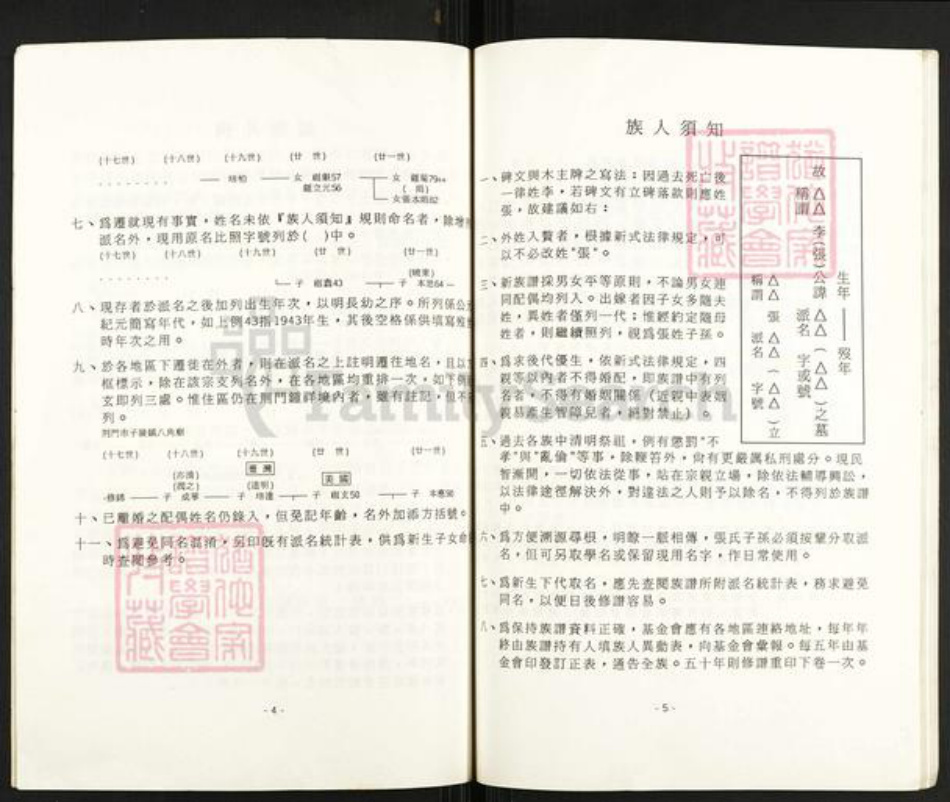 (十七世) (十八世) (十九世) (廿 世) (廿一世)
七、爲遷就現有事實，姓名未依『族人須知』規則命名者，除增
派名外，現用原名比照字號列於( )中。
(十七世) (十八世) (十九世) (廿 世) (廿一世)
子 本忠64
八、現存者於派名之後加列出生年次，以明長幼之序。所列係公元
紀元簡寫年代，如上例43指1943年生，其後空格係供填寫
時年次之用。
九、於各地區下遷徙在外者，則在派名之上註明遷往地名，且以
框標示，除在該宗支列名外，在各地區均重排一次，如下例
玄即列三處。惟住區仍在荆門鍾祥境內者，雖有註記，但不
列。
荆門市子陵鎮八角廟
(十七世) (十八世) (十九世) (廿 世) (廿一世)
臺灣
美國
子 成寧 子 培達 子 祖玄50 子 本應90
十、已離婚之配偶姓名仍錄入，但免記年齡，名外加添方括號。
十一、爲避免同名混淆，另印旣有派名統計表，供爲新生子女命
時查閱參考。
- 4 -
族人須知
一、碑文與木主牌之寫法：因過去死亡後
一律姓李，若碑文有立碑落款則應姓
張，故建議如右：
生年 歿年
故 △△ 李(張)公諱 △△ (△△) 之墓
稱謂 派名 字或號
△△ 張 △△ (△△) 立
稱謂 派名 字號
二、外姓入贅者，根據新式法律規定，可
以不必改姓"張"。
三、新族譜採男女平等原則，不論男女連
同配偶均列入。出嫁者因子女多隨夫
姓，異姓者僅列一代；惟經約定隨母
姓者，則繼續照列，視爲張姓子孫。
四、爲求後代優生，依新式法律規定，四
親等以內者不得婚配，即族譜中有列
名者，不得有婚姻關係（近親中表姻
親易產生智障兒者，絕對禁止）。
五、過去各族中清明祭祖，例有懲罰"不
孝"與"亂倫"等事，除鞭笞外，尙有更嚴厲私刑處分。現民
智漸開，一切依法從事，站在宗親立場，除依法輔導興訟，
以法律途徑解決外，對違法之人則予以除名，不得列於族譜
中。
六、爲方便溯源尋根，明瞭一脈相傳，張氏子孫必須按輩分取派
名，但可另取學名或保留現用名字，作日常使用。
七、爲新生下代取名，應先查閱族譜所附派名統計表，務求避免
同名，以便日後修譜容易。
八、爲保持族譜資料正確，基金會應有各地區連絡地址，每年年
終由族譜持有人填族人異動表，向基金會彙報。每五年由基
金會印發訂正表，通告全族。五十年則修譜重印下卷一次。
- 5 -
FamilySearch